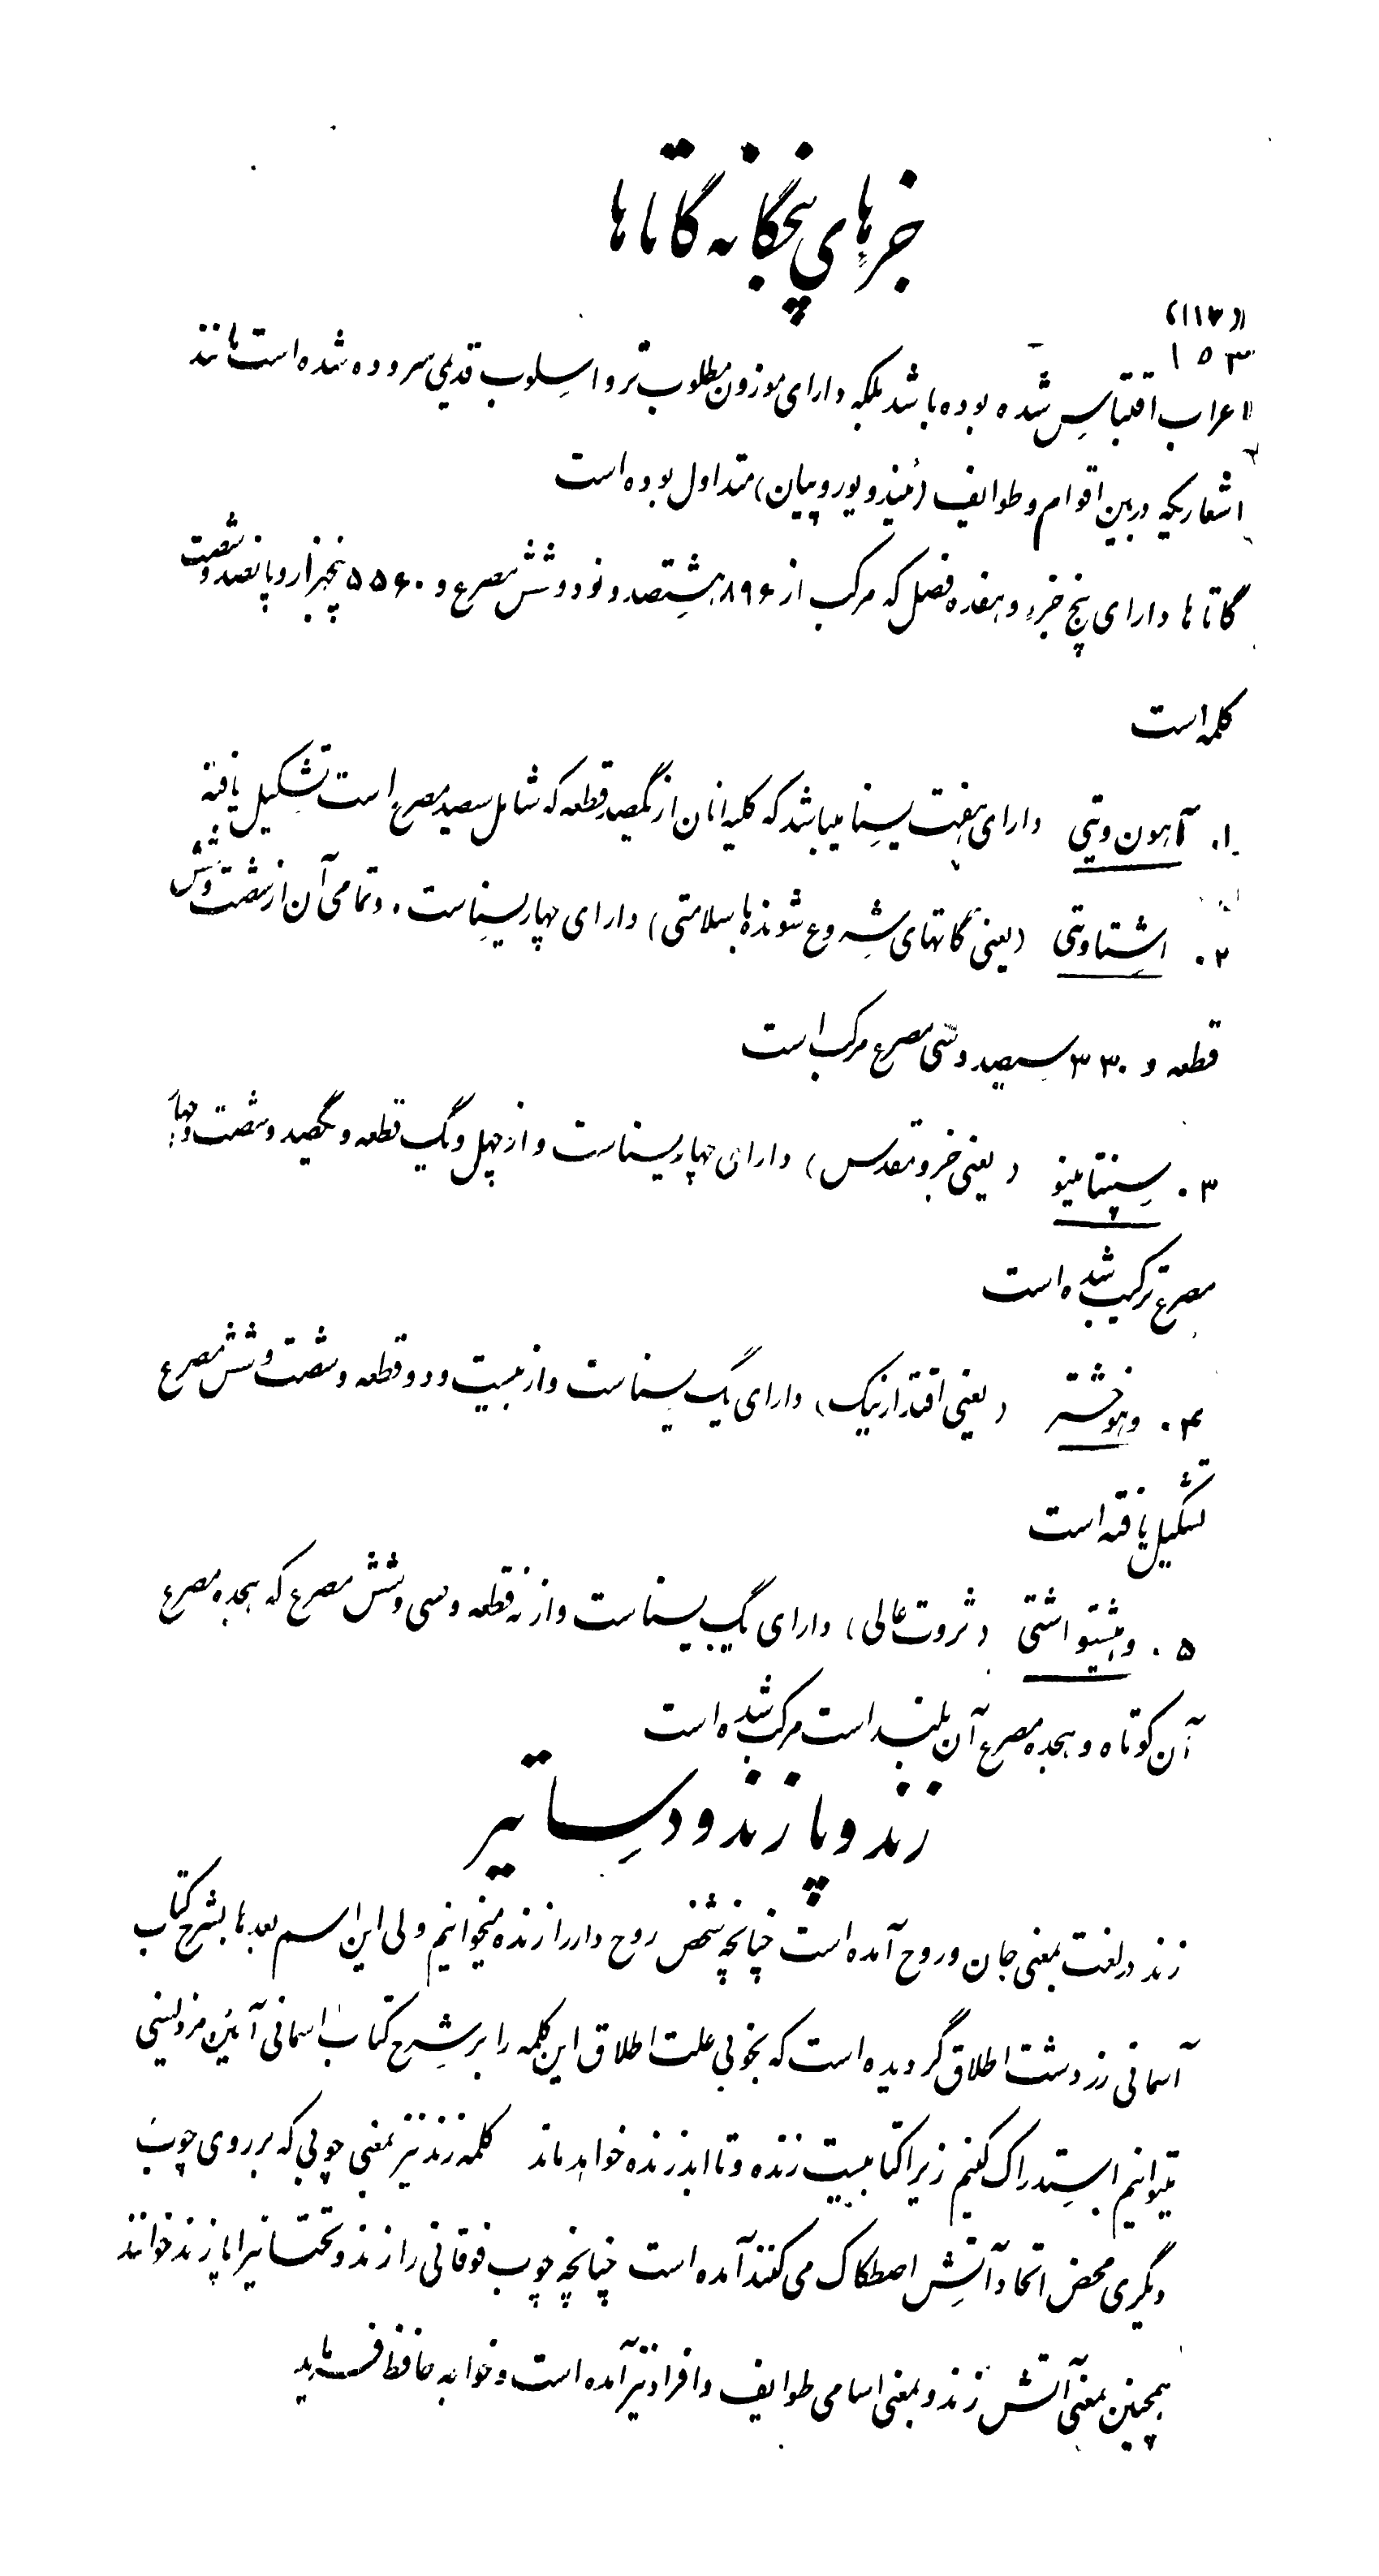 جزءهای پنجگانه گاتاها
((۱۱۳))
۱۵۳
اعراب اقتباس شده بوده باشد بلکه دارای موزون مطلوب‌تر و اسلوب قدیمی سروده شده است مانند
اشعاریکه در بین اقوام و طوایف (هیندو یوروپیان) متداول بوده است
گاتاها دارای پنج جزء و هفده فصل که مرکب از ۸۹۶ هشتصد و نود و شش مصرع و ۵۵۶۰ پنجهزار و پانصد و شصت
کلمه است
۱. آهون ویتی دارای هفت یسنا میباشد که کلیه انان از یکصد قطعه که شامل سیصد مصرع است تشکیل یافته
۲. اشتاویتی (یعنی گاتهای شروع شونده با سلامتی) دارای چهار یسناست. و تمامی آن از شصت و شش
قطعه و ۳۳۰ سیصد و سی مصرع مرکب است
۳. سپنتامینو (یعنی خرد مقدس) دارای چهار یسناست و از چهل و یک قطعه و یکصد و شصت و چهار
مصرع ترکیب شده است
۴. وهوخشتر (یعنی اقتدار نیک) دارای یک یسناست و از بیست و دو قطعه و شصت و شش مصرع
تشکیل یافته است
۵. وهیشتواشتی (ثروت عالی) دارای یک یسناست و از نه قطعه و سی و شش مصرع که هجده مصرع
آن کوتاه و هجده مصرع آن بلند است مرکب شده است
زند و پازند و دساتیر
زند در لغت بمعنی جان و روح آمده است چنانچه شخص روح دار را زنده میخوانیم ولی این اسم بعدها بشرح کتاب
آسمانی زردشت اطلاق گردیده است که بخوبی علت اطلاق این کلمه را بر شرح کتاب اسمانی آئین مزدیسنی
میتوانیم استدراک کنیم زیرا کتابیست زنده و تا ابد زنده خواهد ماند کلمه زند نیز بمعنی چوبی که بر روی چوب
دیگری محض اتحاد آتش اصطکاک می کنند آمده است چنانچه چوب فوقانی را زند و تحتانیرا پازند خوانند
همچنین بمعنی آتش زند و بمعنی اسامی طوایف و افراد نیز آمده است و خواجه حافظ فرماید